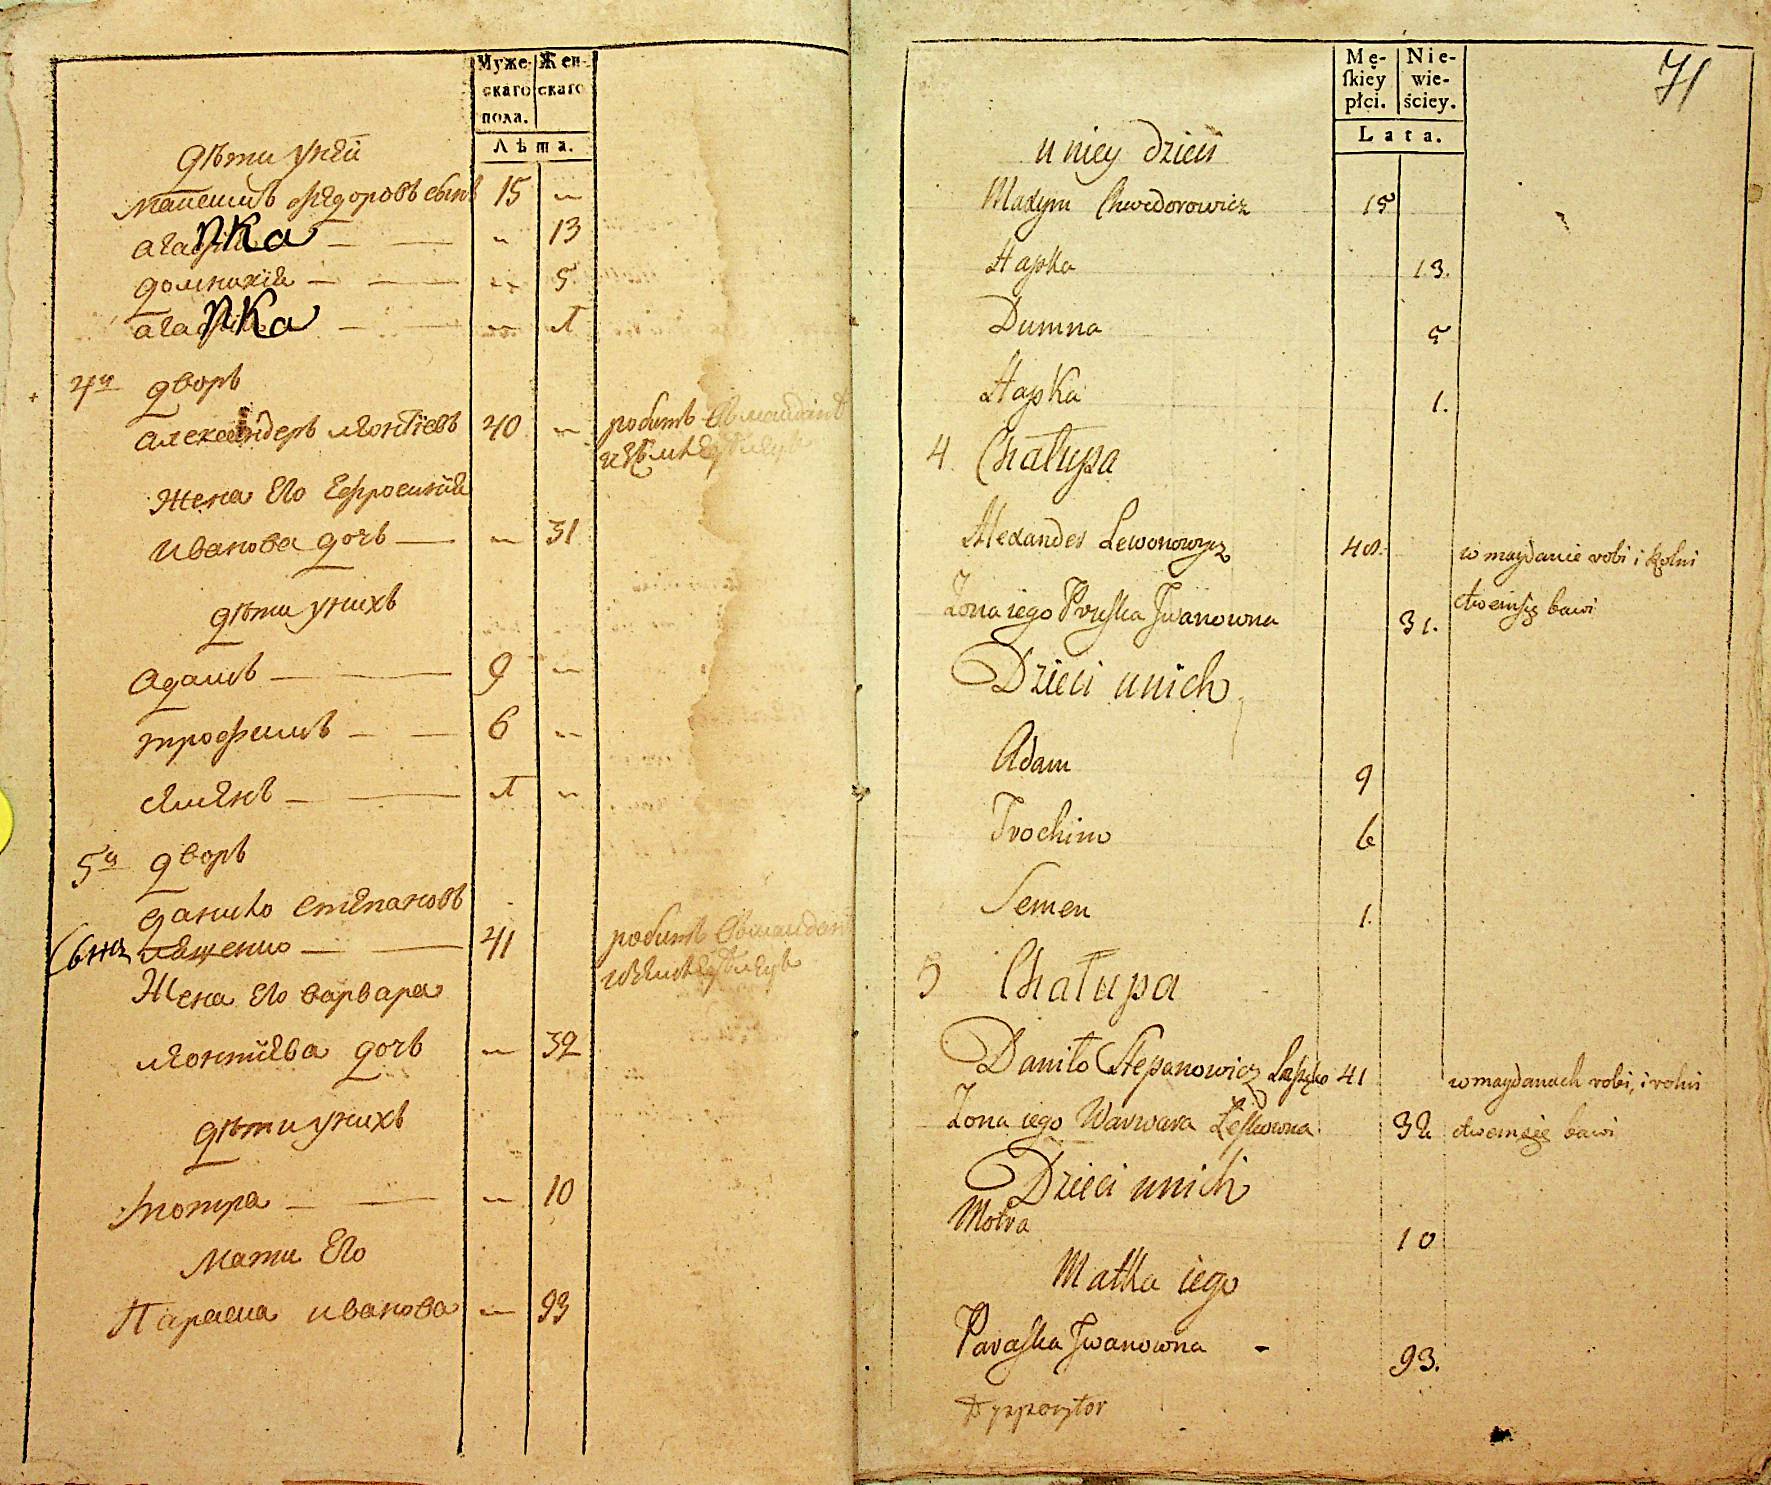 Муже-
скаго
пола.
Жен-
скаго
Лѣта.
дѣти унеи
Максимъ Федоровъ сынъ 15 —
Агапка — — — 13
Домникия — — — 5
Агапка — — — 1
4й дворъ
Александеръ Леонтиевъ 40 — робитъ въ майданѣ
Жена Его Ефросиния
Иванова дочь — — 31
дѣти унихъ
Адамъ — — 9 —
трофимъ — — 6 —
Семенъ — — 1 —
5й дворъ
данило Степановъ
41 робитъ въ майданѣ
Жена Его варвара
Леонтиева дочь — 32
дѣти унихъ
Мотра — — — 10
Мати Его
Параска иванова — 93
Mę-
skiey
płci.
Nie-
wie-
ściey.
Lata.
71
u niey dzieci
Maxym Chwedorowicz 15
Hapka 13.
Dumna 5
Hapka 1.
4. Chałupa
Alexander Lewonowicz 40. w maydanie robi i Rolni
ctwem się bawi
Zona iego Pruska Jwanowna 31.
Dzieci unich
Adam 9
Trochim 6
Semen 1.
5 Chałupa
Daniło Stepanowicz 41 w maydanach robi, i rolni
Zona iego Warwara 32 ctwem się bawi
Dzieci unich
Motra 10
Matka iego
Paraska Jwanowna - 93.